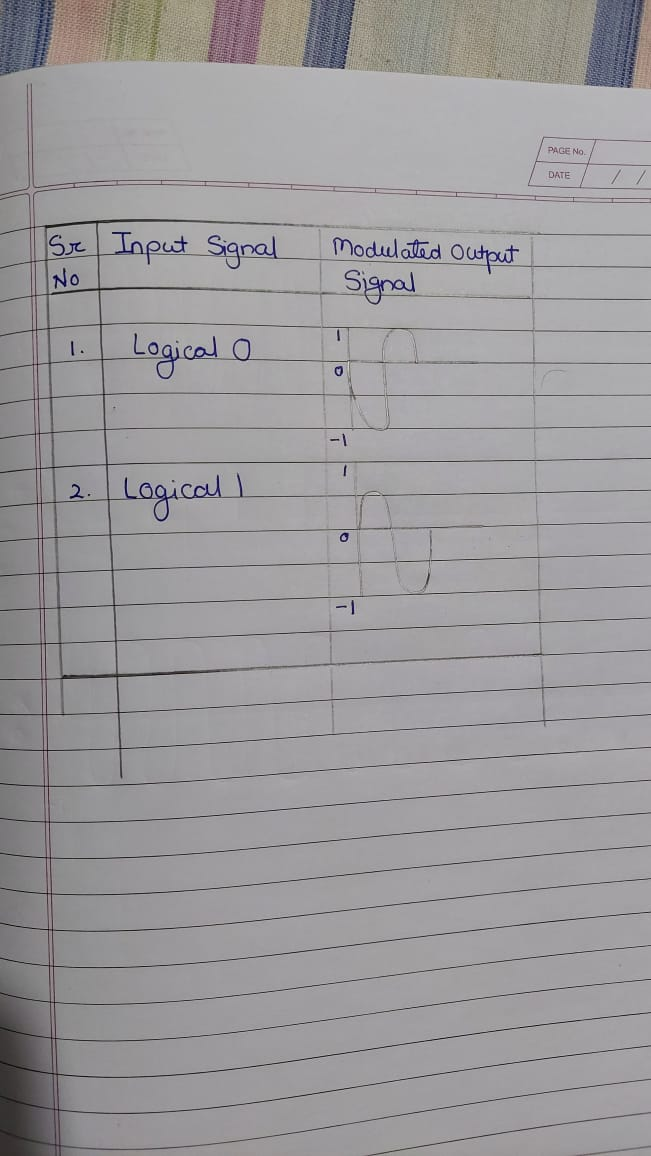 PAGE No.
DATE / /
Sr Input Signal Modulated Output
No Signal
1. Logical 0 1
0
-1
2. Logical 1 1
0
-1